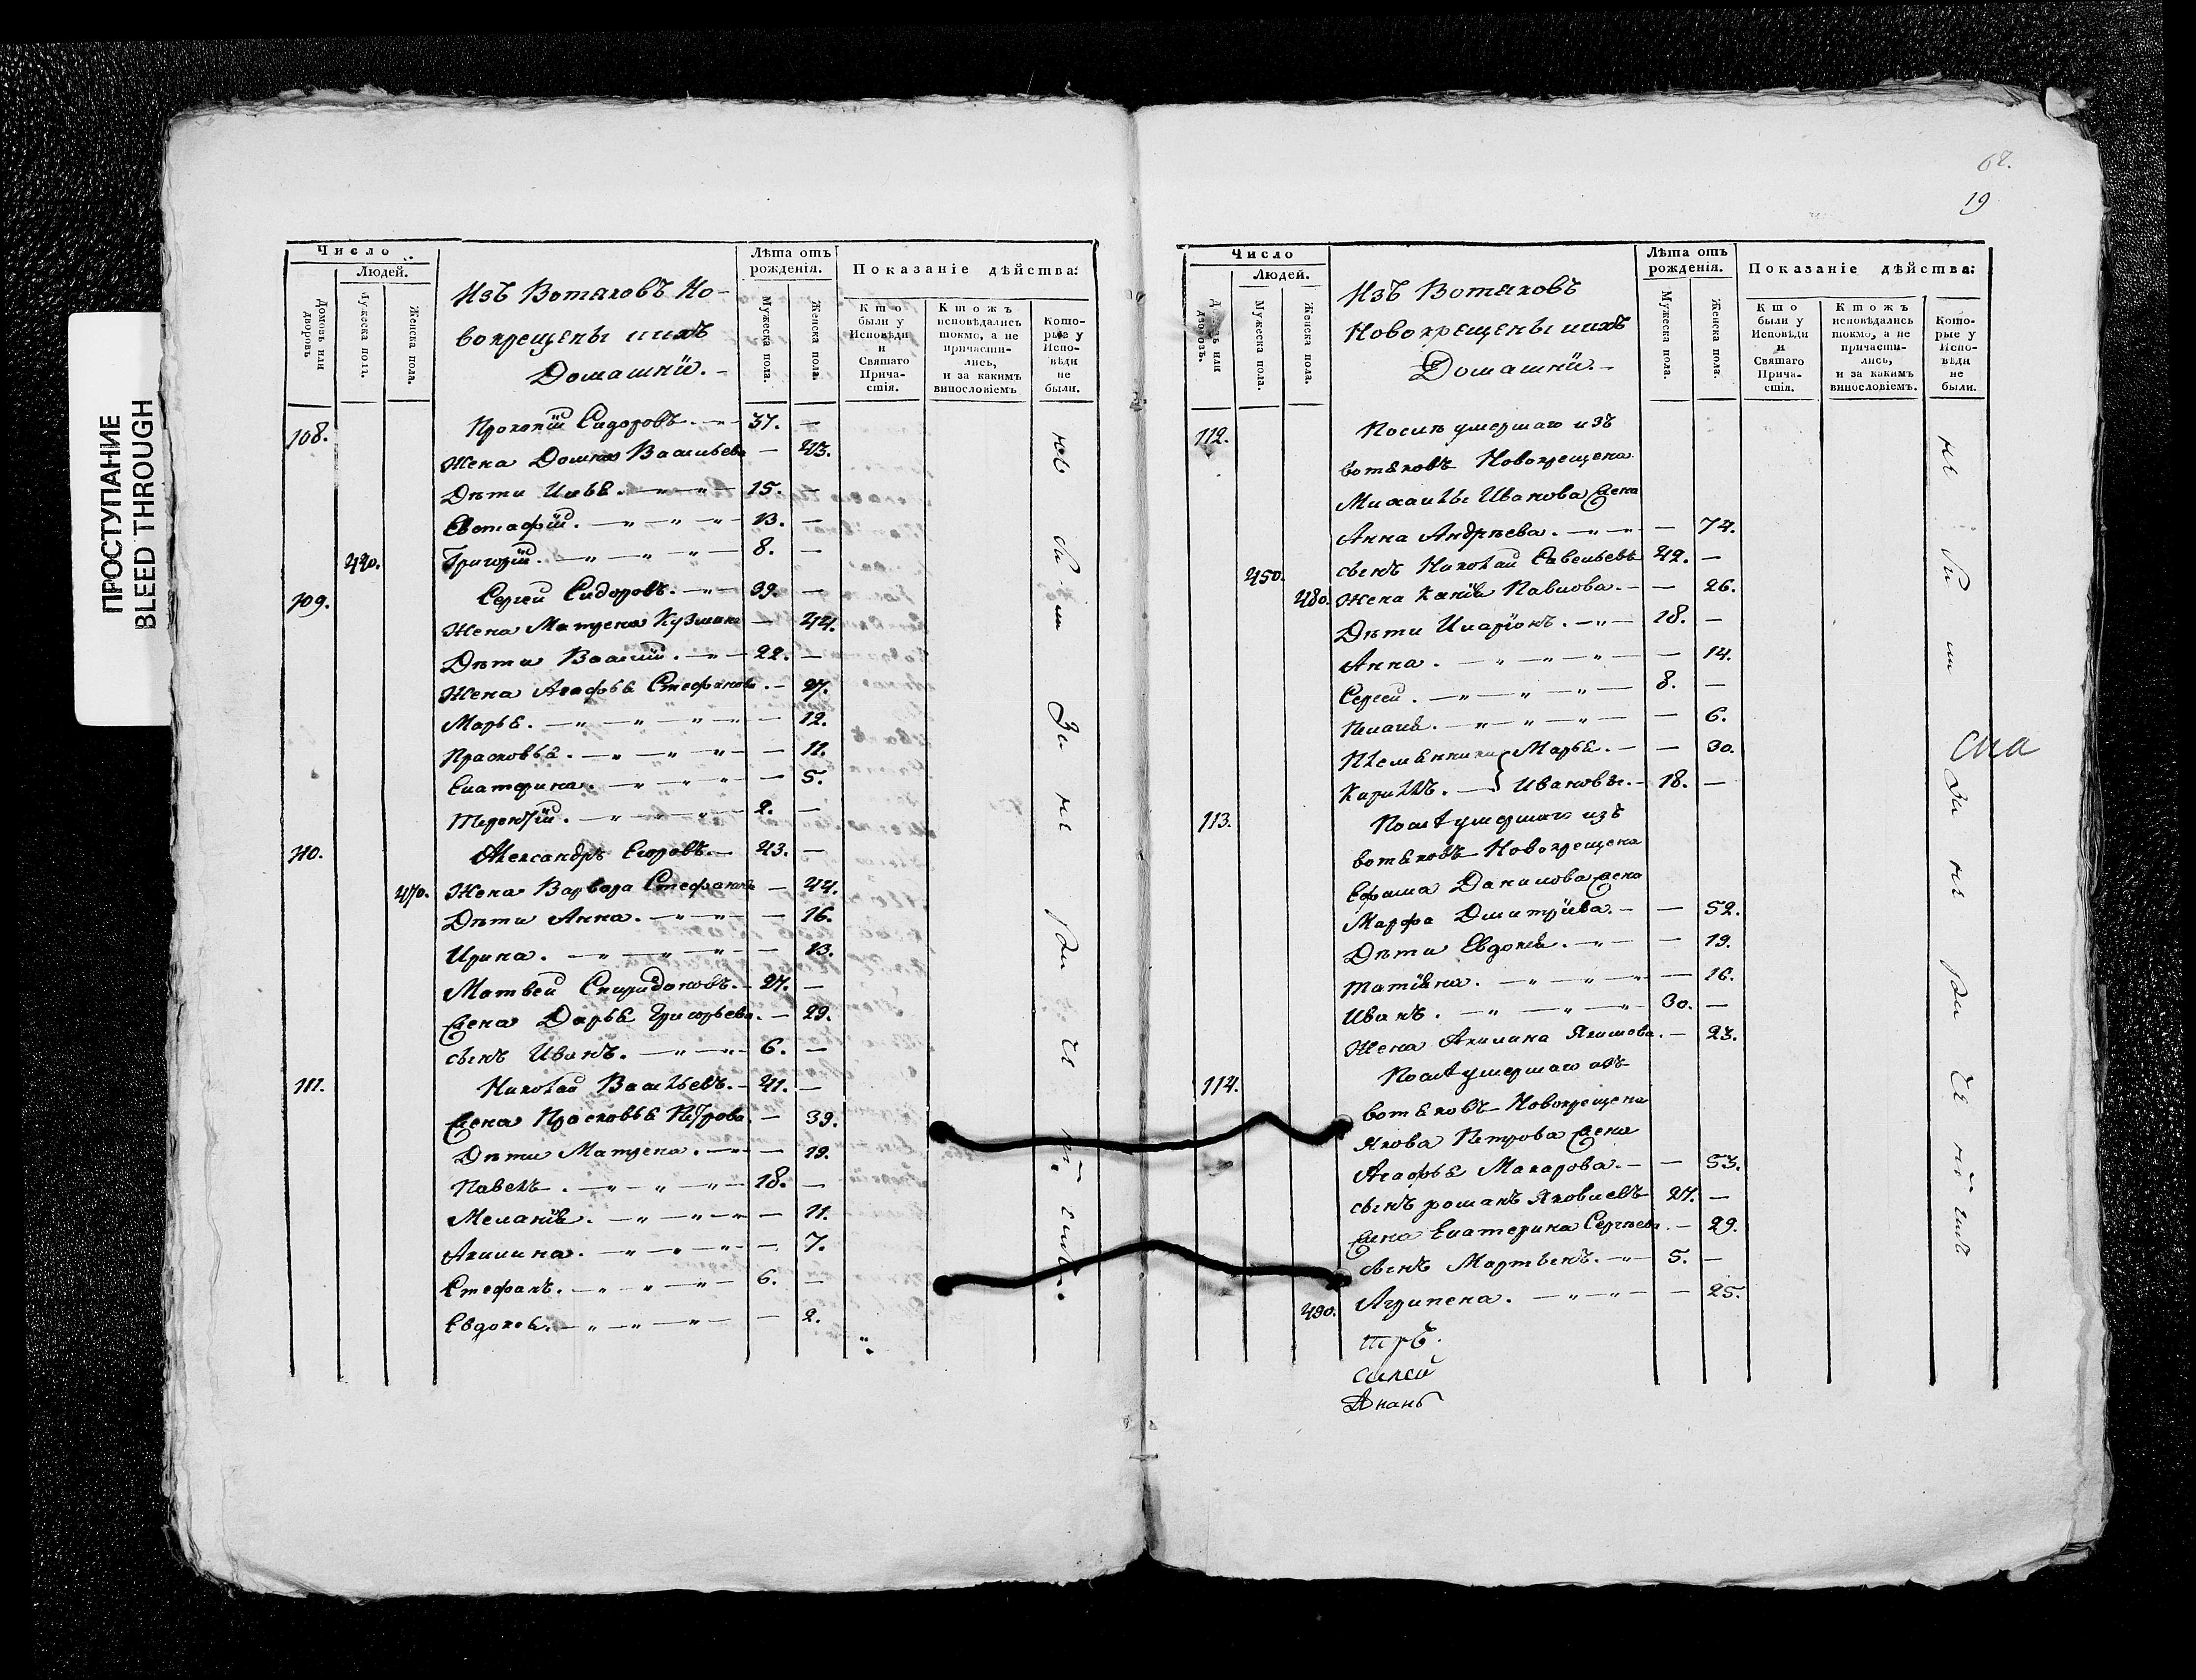 ПРОСТУПАНИЕ
BLEED THROUGH
Число
Людей.
Домовъ или дворовъ
Мужеска полъ.
Женска пола.
Изъ Вотяковъ Но-
вокрещены ихъ
Домашнiи.
Лѣта отъ рожденiя.
Мужеска пола.
Женска пола.
Показанiе дѣйства:
Кто были у Исповѣди и Святаго Прича-стiя.
Ктожъ исповѣдались токмо, а не причасти-лись, и за какимъ винословiемъ
Кото-рые у Испо-вѣди не были.
108. Прокопiй Сидоровъ. 37. —
Жена Домна Васильева — 43.
Дѣти Илья. 15. —
Евстафiй. 13. —
420. Григорiй. 8. —
109. Сергей Сидоровъ. 39. —
Жена Матрена Кузмина — 44.
Дѣти Василiй. 22. —
Жена Агафья Стефанова. — 27.
Марья. — 12.
Прасковья. — 11.
Екатерина. — 5.
Терентiй. 2. —
110. Александръ Егоровъ. 43. —
470. Жена Варвара Стефанова — 44.
Дѣти Анна. — 16.
Ирина. — 13.
Матвей Спиридоновъ. 27. —
Жена Дарья Григорьева. — 29.
сынъ Иванъ. 6. —
111. Николай Васильевъ. 41. —
Жена Прасковья Петрова. — 39.
Дѣти Матрена. — 19.
Павелъ. 18. —
Меланiя. — 11.
Акилина. — 7.
Стефанъ. 6. —
Евдокея. — 2.
19
Число
Людей.
дворовъ.
Мужеска пола.
Женска пола.
Изъ Вотяковъ
Новокрещены ихъ
Домашнiи.
Лѣта отъ рожденiя.
Мужеска пола.
Женска пола.
Показанiе дѣйства:
Кто были у Исповѣди и Святаго Прича-стiя.
Ктожъ исповѣдались токмо, а не причасти-лись, и за какимъ винословiемъ.
Кото-рые у Испо-вѣди не были.
112. Послѣ умершаго изъ
вотяковъ Новокрещена
Михаилы Иванова жена
Анна Андрѣева. — 74.
450. сынъ Николай Савельевъ 42. —
480. Жена Павлова. — 26.
Дѣти Иларiонъ. 18. —
Анна. — 14.
Сергей. 8. —
Пелагiя. — 6.
Племянники Марья. — 30.
Кирилъ. Ивановы. 18. —
113. Послѣ умершаго изъ
вотяковъ Новокрещена
Ефима Данилова жена
Марфа Дмитрiева. — 52.
Дѣти Евдокiя. — 19.
Татiяна. — 16.
Иванъ. 30. —
Жена Акилина Якимова. — 23.
114. Послѣ умершаго изъ
вотяковъ Новокрещена
Якова Петрова жена
Агафья Макарова. — 53.
сынъ романъ Яковлевъ 27. —
Жена Екатерина Сергѣева. — 29.
сынъ Мартынъ. 5. —
490. Агрипена. — 25.